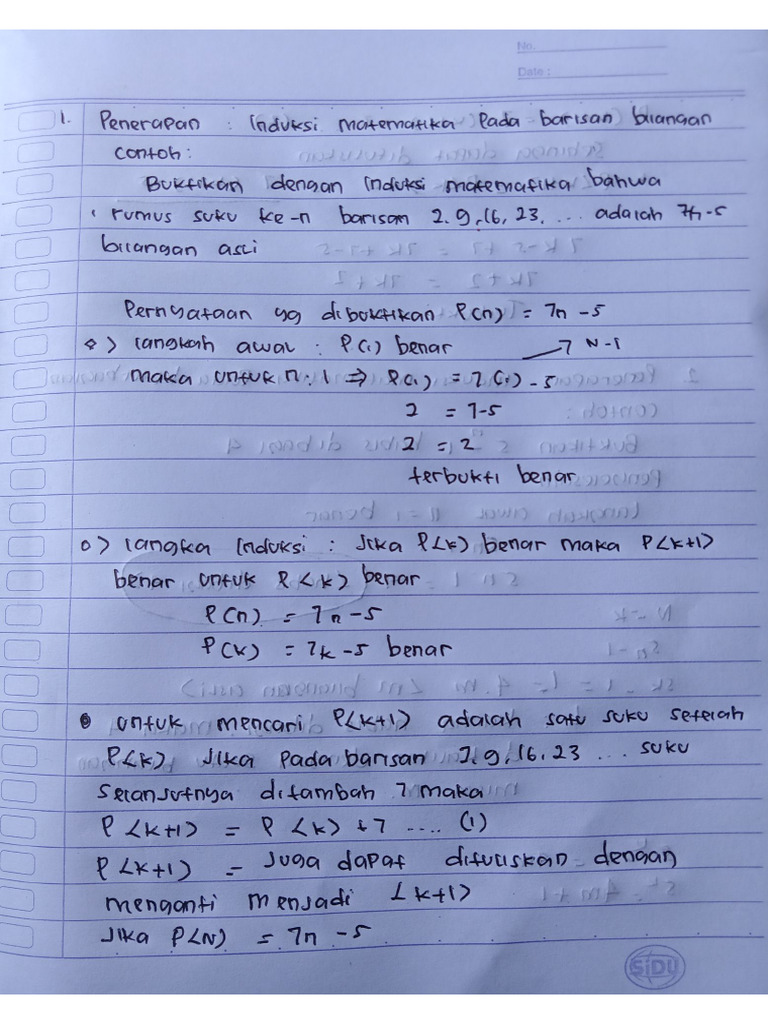 No.
Date :
1. Penerapan : Induksi matematika Pada barisan bilangan
contoh :
Buktikan dengan Induksi matematika bahwa
rumus suku ke-n barisan 2.9,16,23.... adalah 7n-5
bilangan asli
Pernyataan yg dibuktikan P(n) = 7n -5
◇> langkah awal : P(1) benar 7 N-1
maka untuk n:1 ⇒ P(1) = 7(1) -5
2 = 7-5
2 = 2
terbukti benar
0> langka Induksi : Jika P<k> benar maka P<k+1>
benar untuk P<k> benar
P(n) = 7n -5
P(k) = 7k -5 benar
• untuk mencari P<k+1> adalah satu suku setelah
P<k>. Jika pada barisan 2.9,16,23 ... suku
selanjutnya ditambah 7 maka
P <k+1> = P <k> +7 .... (1)
P <k+1> = Juga dapat dituliskan dengan
menganti menjadi <k+1>
Jika P<N> = 7n -5
SIDU